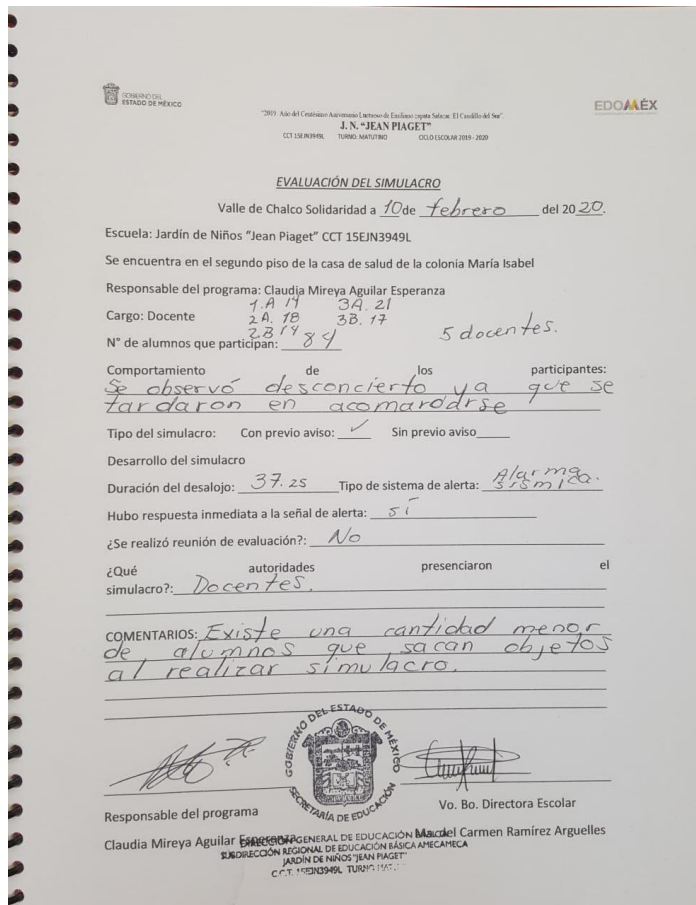 GOBIERNO DEL
ESTADO DE MÉXICO
EDOMÉX
"2019. Año del Centésimo Aniversario Luctuoso de Emiliano Zapata Salazar. El Caudillo del Sur".
J. N. "JEAN PIAGET"
CCT 15EJN3949L TURNO: MATUTINO CICLO ESCOLAR 2019 - 2020
EVALUACIÓN DEL SIMULACRO
Valle de Chalco Solidaridad a 10 de febrero del 2020.
Escuela: Jardín de Niños "Jean Piaget" CCT 15EJN3949L
Se encuentra en el segundo piso de la casa de salud de la colonia María Isabel
Responsable del programa: Claudia Mireya Aguilar Esperanza
1.A 14 3A. 21
Cargo: Docente 2A. 18 3B. 17
2.B 14 5 docentes.
N° de alumnos que participan: 84
Comportamiento de los participantes:
Se observó desconcierto ya que se
tardaron en acomarodrse
Tipo del simulacro: Con previo aviso: ✓ Sin previo aviso
Desarrollo del simulacro
Duración del desalojo: 37.25 Tipo de sistema de alerta: Alarma sísmica.
Hubo respuesta inmediata a la señal de alerta: sí
¿Se realizó reunión de evaluación?: No
¿Qué autoridades presenciaron el
simulacro?: Docentes.
COMENTARIOS: Existe una cantidad menor
de alumnos que sacan objetos
al realizar simulacro.
GOBIERNO DEL ESTADO DE MÉXICO
SECRETARÍA DE EDUCACIÓN
Responsable del programa Vo. Bo. Directora Escolar
Claudia Mireya Aguilar Esperanza Ma. del Carmen Ramírez Arguelles
DIRECCIÓN GENERAL DE EDUCACIÓN BÁSICA
SUBDIRECCIÓN REGIONAL DE EDUCACIÓN BÁSICA AMECAMECA
JARDÍN DE NIÑOS "JEAN PIAGET"
C.C.T. 15EJN3949L TURNO